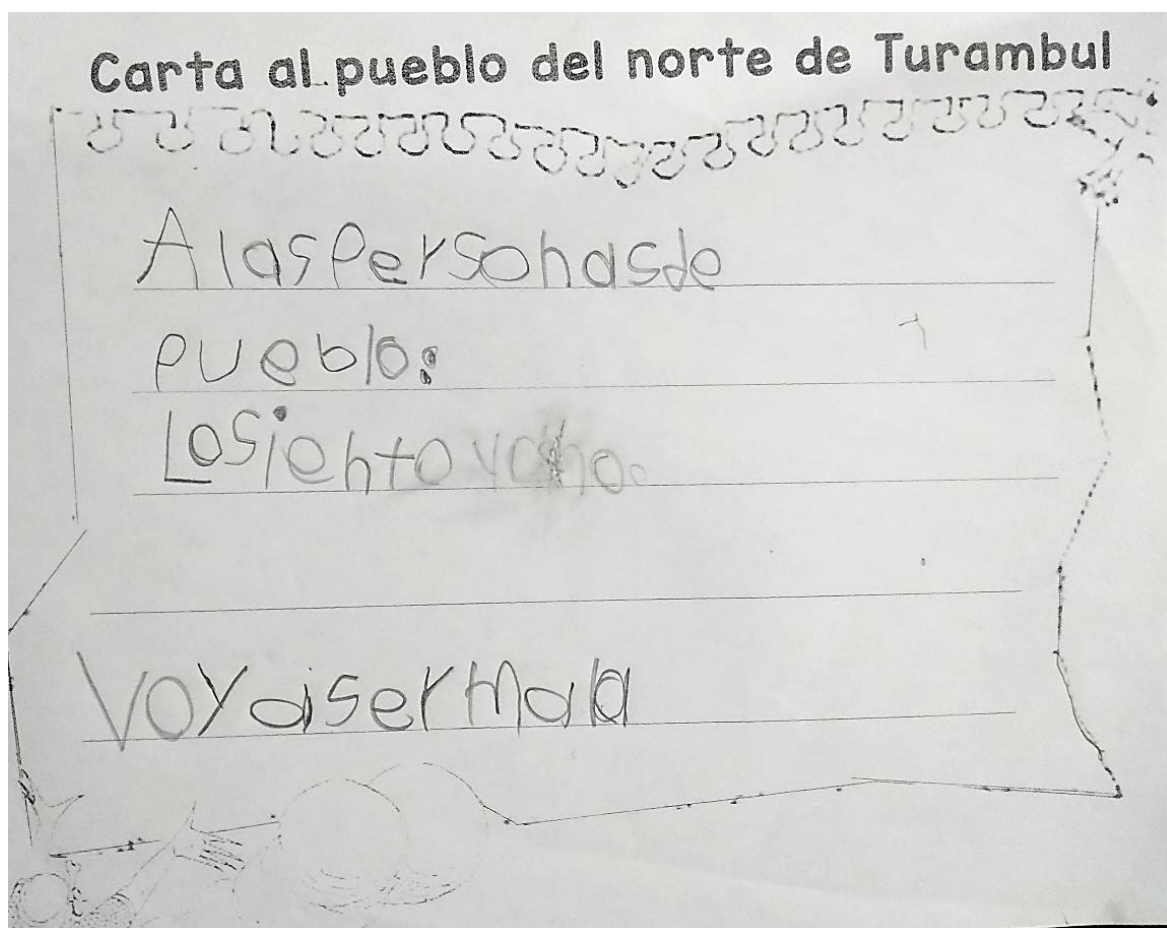 Carta al pueblo del norte de Turambul
A las Personas de
pueblo:
Lo siento ya no.
Voy a ser mala